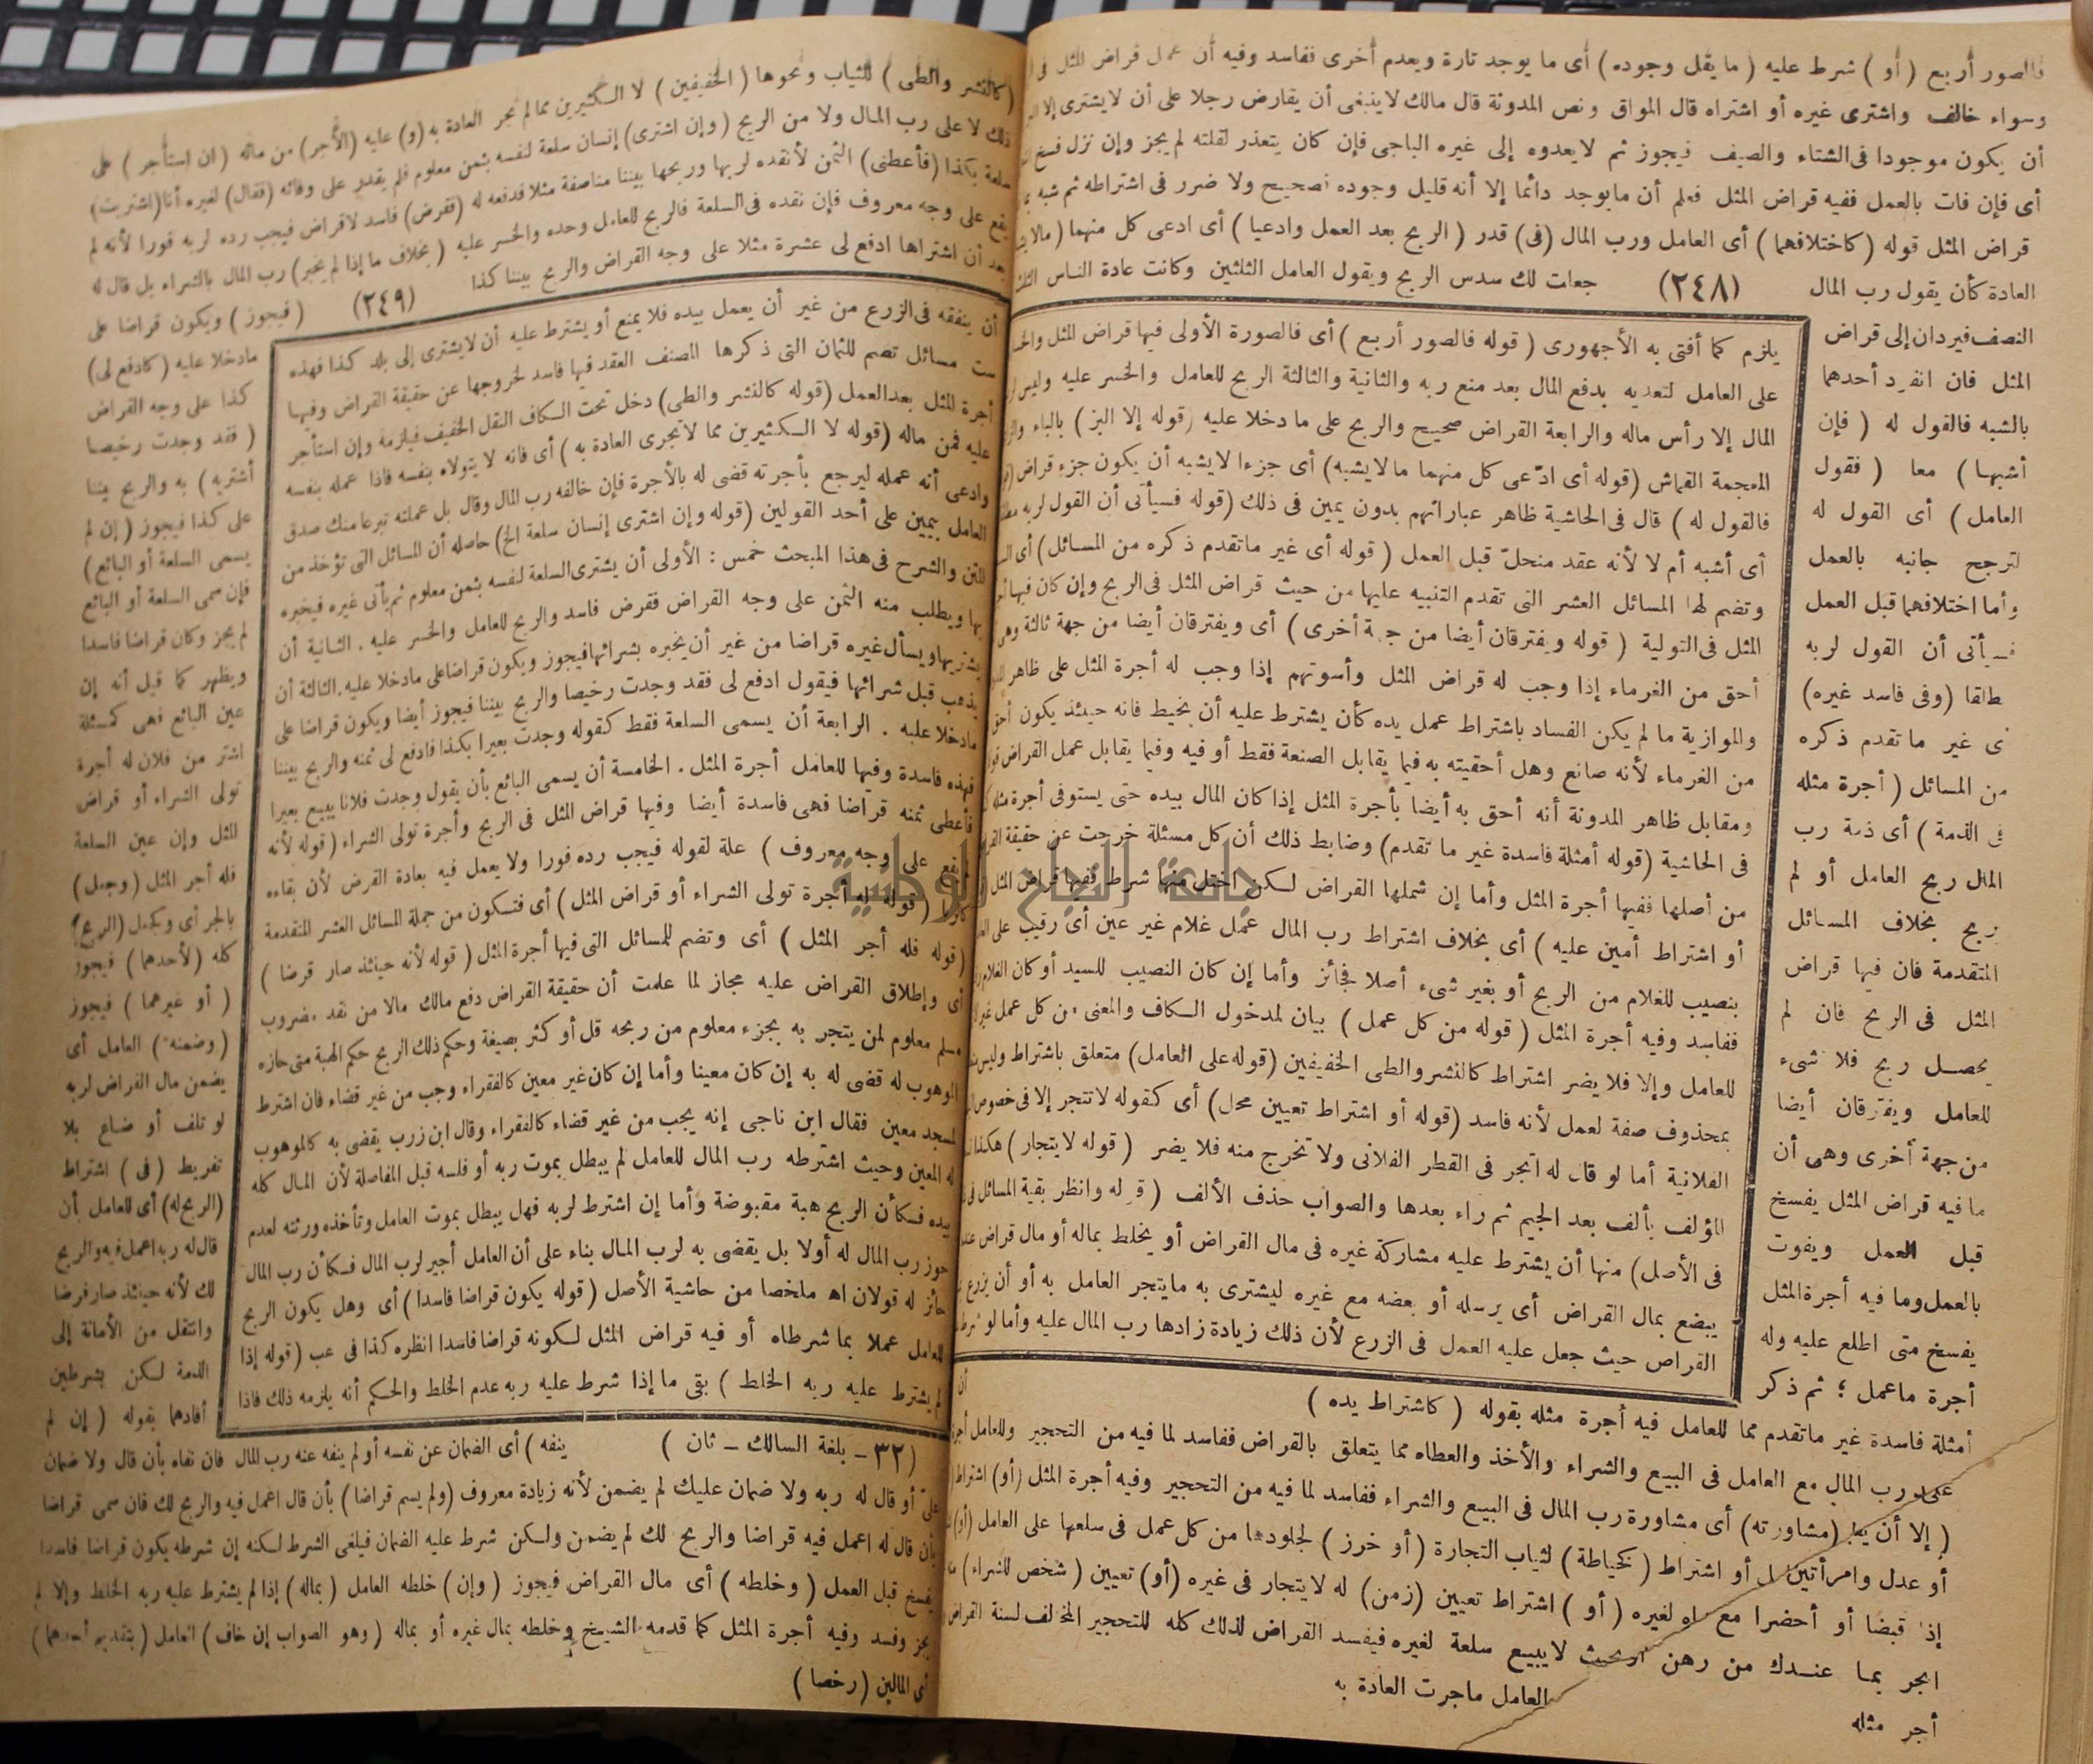 فالصور أربع (أو) شرط عليه (ما يقل وجوده) أى ما يوجد تارة ويعدم أخرى ففاسد وفيه أن عمل قراض المثل
وسواء خالف واشترى غيره أو اشتراه قال المواق ونص المدونة قال مالك لا ينبغى أن يقارض رجلا على أن لا يشترى إلا
أن يكون موجودا فى الشتاء والصيف فيجوز ثم لا يعدوه إلى غيره الباجى فإن كان يتعذر لقلته لم يجز وإن نزل فسخ
أى فإن فات بالعمل ففيه قراض المثل فعلم أن ما يوجد دائما إلا أنه قليل وجوده صحيح ولا ضرر فى اشتراطه ثم شبه
قراض المثل قوله (كاختلافهما) أى العامل ورب المال (فى) قدر (الربح بعد العمل وادعيا) أى ادعى كل منهما (مالا
العادة كأن يقول رب المال (٢٤٨) جعلت لك سدس الربح ويقول العامل الثلثين وكانت عادة الناس الثلث
النصف فيردان إلى قراض
المثل فان انفرد أحدهما
بالشبه فالقول له (فإن
أشبها) معا (فقول
العامل) أى القول له
لترجح جانبه بالعمل
وأما اختلافهما قبل العمل
فسيأتى أن القول لربه
مطلقا (وفى فاسد غيره)
أى غير ما تقدم ذكره
من المسائل (أجرة مثله
فى الذمة) أى ذمة رب
المال ربح العامل أو لم
يربح بخلاف المسائل
المتقدمة فان فيها قراض
المثل فى الربح فان لم
يحصل ربح فلا شىء
للعامل ويفترقان أيضا
من جهة أخرى وهى أن
ما فيه قراض المثل يفسخ
قبل العمل ويفوت
بالعمل وما فيه أجرة المثل
يفسخ متى اطلع عليه وله
أجرة ما عمل ؛ ثم ذكر
يلزم كما أفتى به الأجهورى (قوله فالصور أربع) أى فالصورة الأولى فيها قراض المثل
على العامل لتعديه بدفع المال بعد منع ربه والثانية والثالثة الربح للعامل والخسر عليه وليس
المال إلا رأس ماله والرابعة القراض صحيح والربح على ما دخلا عليه (قوله إلا البز) بالباء
المعجمة القماش (قوله أى ادّعى كل منهما ما لا يشبه) أى جزءا لا يشبه أن يكون جزء قراض
فالقول له) قال فى الحاشية ظاهر عباراتهم بدون يمين فى ذلك (قوله فسيأتى أن القول لربه
أى أشبه أم لا لأنه عقد منحلّ قبل العمل (قوله أى غير ما تقدم ذكره من المسائل) أى
وتضم لهذا المسائل العشر التى تقدم التنبيه عليها من حيث قراض المثل فى الربح وإن كان فيها
المثل فى التولية (قوله ويفترقان أيضا من جهة أخرى) أى ويفترقان أيضا من جهة ثالثة وهى
أحق من الغرماء إذا وجب له قراض المثل وأسوتهم إذا وجب له أجرة المثل على ظاهر
والموازية ما لم يكن الفساد باشتراط عمل يده كأن يشترط عليه أن يخيط فانه حينئذ يكون أحق
من الغرماء لأنه صانع وهل أحقيته به فيما يقابل الصنعة فقط أو فيه وفيما يقابل عمل القراض
ومقابل ظاهر المدونة أنه أحق به أيضا بأجرة المثل إذا كان المال بيده حتى يستوفى أجرة
فى الحاشية (قوله أمثلة فاسدة غير ما تقدم) وضابط ذلك أن كل مسئلة خرجت عن حقيقة
من أصلها ففيها أجرة المثل وأما إن شملها القراض لكن اختل منها شرط ففيها قراض المثل
أو اشتراط أمين عليه) أى بخلاف اشتراط رب المال عمل غلام غير عين أى رقيب على
بنصيب للغلام من الربح أو بغير شىء أصلا فجائز وأما إن كان النصيب للسيد أو كان الغلام
ففاسد وفيه أجرة المثل (قوله من كل عمل) بيان لمدخول الكاف والمعنى من كل عمل
للعامل وإلا فلا يضر اشتراط كالنشر والطى الخفيفين (قوله على العامل) متعلق باشتراط وليس
بمحذوف صفة لعمل لأنه فاسد (قوله أو اشتراط تعيين محل) أى كقوله لا تتجر إلا فى خصوص
الفلانية أما لو قال له اتجر فى القطر الفلانى ولا تخرج منه فلا يضر (قوله لا يتجار) هكذا
المؤلف بألف بعد الجيم ثم راء بعدها والصواب حذف الألف (قوله وانظر بقية المسائل
فى الأصل) منها أن يشترط عليه مشاركة غيره فى مال القراض أو يخلط بماله أو مال قراض
يبضع بمال القراض أى يرسله أو بعضه مع غيره ليشترى به ما يتجر العامل به أو أن يزرع
القراض حيث جعل عليه العمل فى الزرع لأن ذلك زيادة زادها رب المال عليه وأما لو
أن
أمثلة فاسدة غير ما تقدم مما للعامل فيه أجرة مثله بقوله (كاشتراط يده)
على رب المال مع العامل فى البيع والشراء والأخذ والعطاه مما يتعلق بالقراض ففاسد لما فيه من التحجير وللعامل
(مشاورته) أى مشاورة رب المال فى البيع والشراء ففاسد لما فيه من التحجير وفيه أجرة المثل (أو)
أو اشتراط (كخياطة) لثياب التجارة (أو خرز) لجلودها من كل عمل فى سلعها على العامل (أو)
لغيره (أو) اشتراط تعيين (زمن) له لا يتجار فى غيره (أو) تعيين (شخص للشراء)
لا يبيع سلعة لغيره فيفسد القراض لذلك كله للتحجير المخالف لسنة القراض
العامل ما جرت العادة به
(كالنشر والطى) للثياب ونحوها (الخفيفين) لا الكثيرين مما لم تجر العادة به (و) عليه (الأجر) من ماله (ان استأجر) على
ذلك لا على رب المال ولا من الربح (وإن اشترى) إنسان سلعة لنفسه بثمن معلوم فلم يقدر على وفائه (فقال) لغيره أنا (اشتريت)
سلعة بكذا (فأعطنى) الثمن لأنقده لربها وربحها بيننا مناصفة مثلا فدفعه له (فقرض) فاسد لا قراض فيجب رده لربه فورا لأنه لم
يقع على وجه معروف فإن نقده فى السلعة فالربح للعامل وحده والخسر عليه (بخلاف ما إذا لم يخبر) رب المال بالشراء بل قال له
بعد أن اشتراها ادفع لى عشرة مثلا على وجه القراض والربح بيننا كذا (٢٤٩) (فيجوز) ويكون قراضا على
ما دخلا عليه (كادفع لى)
كذا على وجه القراض
(فقد وجدت رخيصا
أشتريه) به والربح بيننا
على كذا فيجوز (إن لم
يسمى السلعة أو البائع)
فإن سمى السلعة أو البائع
لم يجز وكان قراضا فاسدا
ويظهر كما قيل أنه إن
عين البائع فهى كمسئلة
اشتر من فلان له أجرة
تولى الشراء أو قراض
المثل وإن عين السلعة
فله أجر المثل (وجعل)
بالجر أى وكجعل (الربح)
كله (لأحدهما) فيجوز
(أو غيرهما) فيجوز
(وضمنه) العامل أى
يضمن مال القراض لربه
لو تلف أو ضاع بلا
تفريط (فى) اشتراط
(الربح له) أى للعامل بأن
قال له ربه اعمل فيه والربح
لك لأنه حينئذ صار قرضا
وانتقل من الأمانة إلى
الذمة لكن بشرطين
أفادهما بقوله (إن لم
أن ينفقه فى الزرع من غير أن يعمل بيده فلا يمنع أو يشترط عليه أن لا يشترى إلى بلد كذا فهذه
ست مسائل تضم للثمان التى ذكرها المصنف العقد فيها فاسد لخروجها عن حقيقة القراض وفيها
أجرة المثل بعد العمل (قوله كالنشر والطى) دخل تحت الكاف النقل الخفيف فيلزمه وإن استأجر
عليه فمن ماله (قوله لا الكثيرين مما لا تجرى العادة به) أى فانه لا يتولاه بنفسه فاذا عمله بنفسه
وادعى أنه عمله ليرجع بأجرته قضى له بالأجرة فإن خالفه رب المال وقال بل عملته تبرعا منك صدق
العامل بيمين على أحد القولين (قوله وإن اشترى إنسان سلعة الخ) حاصله أن المسائل التى تؤخذ من
المتن والشرح فى هذا المبحث خمس : الأولى أن يشترى السلعة لنفسه بثمن معلوم ثم يأتى غيره فيخبره
بها ويطلب منه الثمن على وجه القراض فقرض فاسد والربح للعامل والخسر عليه . الثانية أن
يشتريها ويسأل غيره قراضا من غير أن يخبره بشرائها فيجوز ويكون قراضا على ما دخلا عليه . الثالثة أن
يذهب قبل شرائها فيقول ادفع لى فقد وجدت رخيصا والربح بيننا فيجوز أيضا ويكون قراضا على
ما دخلا عليه . الرابعة أن يسمى السلعة فقط كقوله وجدت بعيرا بكذا فادفع لى ثمنه والربح بيننا
فهذه فاسدة وفيها للعامل أجرة المثل . الخامسة أن يسمى البائع بأن يقول وجدت فلانا يبيع بعيرا
فأعطى ثمنه قراضا فهى فاسدة أيضا وفيها قراض المثل فى الربح وأجرة تولى الشراء (قوله لأنه
لم يقع على وجه معروف) علة لقوله فيجب رده فورا ولا يعمل فيه بعادة القرض لأن بقاءه
(قوله له أجرة تولى الشراء أو قراض المثل) أى فتكون من جملة المسائل العشر المتقدمة
(قوله فله أجر المثل) أى وتضم للمسائل التى فيها أجرة المثل (قوله لأنه حينئذ صار قرضا)
أى وإطلاق القراض عليه مجاز لما علمت أن حقيقة القراض دفع مالك مالا من نقد مضروب
مسلم معلوم لمن يتجر به بجزء معلوم من ربحه قل أو كثر بصيغة وحكم ذلك الربح حكم الهبة متى حازه
الموهوب له قضى له به إن كان معينا وأما إن كان غير معين كالفقراء وجب من غير قضاء فان اشترط
لمسجد معين فقال ابن ناجى إنه يجب من غير قضاء كالفقراء وقال ابن زرب يقضى به كالموهوب
له المعين وحيث اشترطه رب المال للعامل لم يبطل بموت ربه أو فلسه قبل المفاصلة لأن المال كله
بيده فكأن الربح هبة مقبوضة وأما إن اشترط لربه فهل يبطل بموت العامل وتأخذه ورثته لعدم
حوز رب المال له أولا بل يقضى به لرب المال بناء على أن العامل أجير لرب المال فكأن رب المال
حائز له قولان اه ملخصا من حاشية الأصل (قوله يكون قراضا فاسدا) أى وهل يكون الربح
للعامل عملا بما شرطاه أو فيه قراض المثل لكونه قراضا فاسدا انظره كذا فى عب (قوله إذا
لم يشترط عليه ربه الخلط) بقى ما إذا شرط عليه ربه عدم الخلط والحكم أنه يلزمه ذلك فاذا
(٣٢ – بلغة السالك – ثان)
ينفه) أى الضمان عن نفسه أو لم ينفه عنه رب المال فان نفاه بأن قال ولا ضمان
علىّ أو قال له ربه ولا ضمان عليك لم يضمن لأنه زيادة معروف (ولم يسم قراضا) بأن قال اعمل فيه والربح لك فان سمى قراضا
بأن قال له اعمل فيه قراضا والربح لك لم يضمن ولكن شرط عليه الضمان فيلغى الشرط لكنه إن شرطه يكون قراضا فاسدا
يفسخ قبل العمل (وخلطه) أى مال القراض فيجوز (وإن) خلطه العامل (بماله) إذا لم يشترط عليه ربه الخلط وإلا لم
يجز وفسد وفيه أجرة المثل كما قدمه الشيخ وخلطه بمال غيره أو بماله (وهو الصواب إن خاف) العامل (بتقديم أحدهما)
أى المالين (رخصا)
(إلا أن
أو عدل وامرأتين
إذا قبضا أو أحضرا مع
اتجر بما عندك من رهن
أجر مثله
جامعة النجاح الوطنية